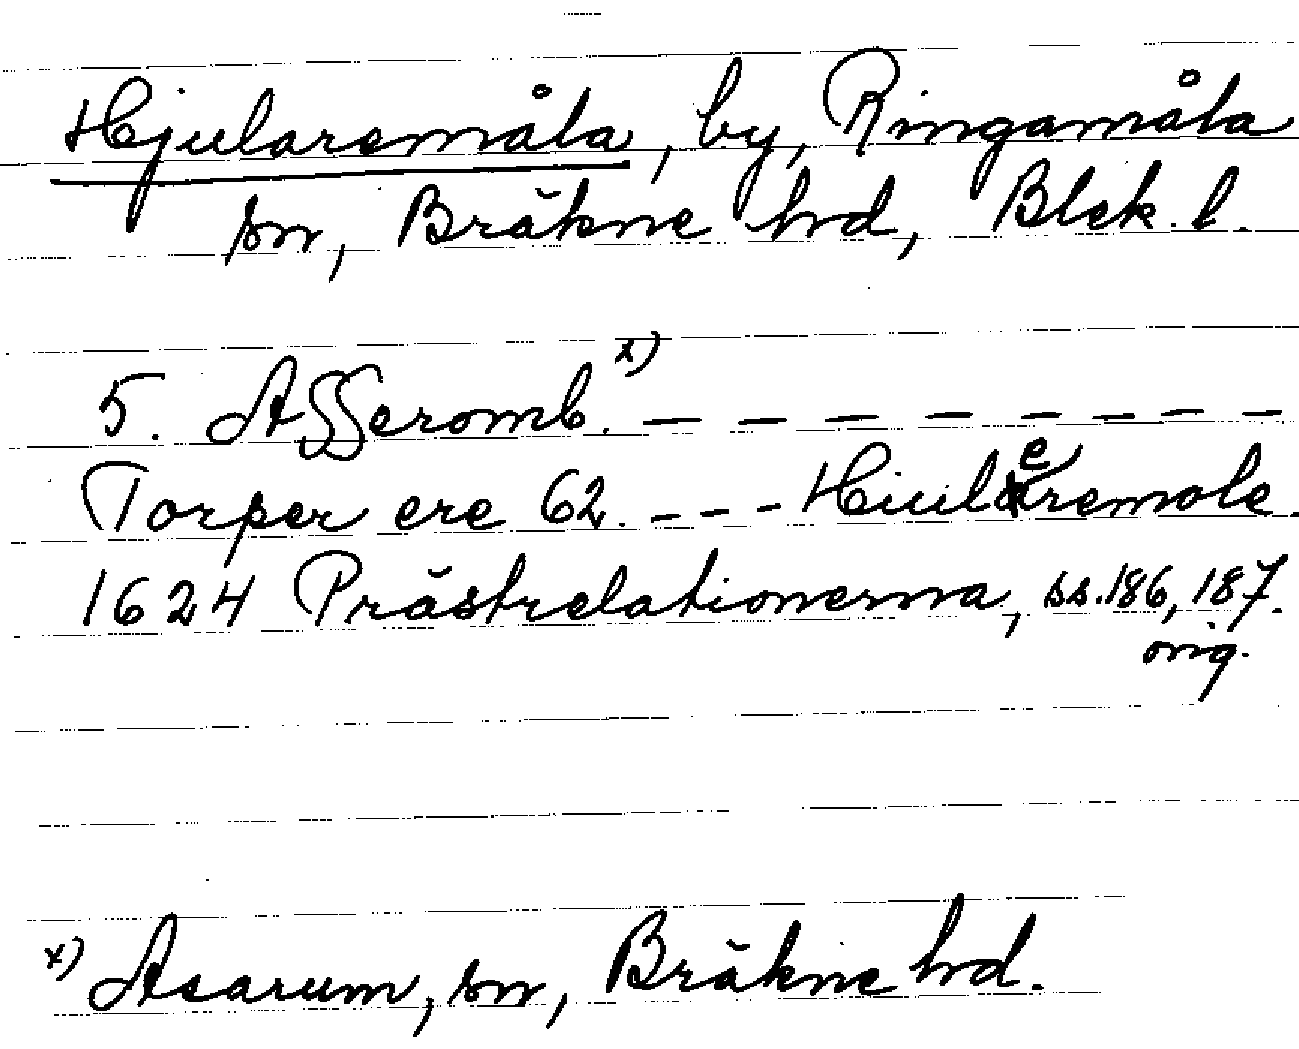 Hjularemåla, by, Ringamåla
sn, Bräkne hd, Blek. l.
5. Aſſeromb. x) — — — — — — — —
Torper ere 62. - - - Hiuleremole.
1624 Prästrelationerna, ss. 186, 187.
orig.
x) Asarum, sn, Bräkne hd.